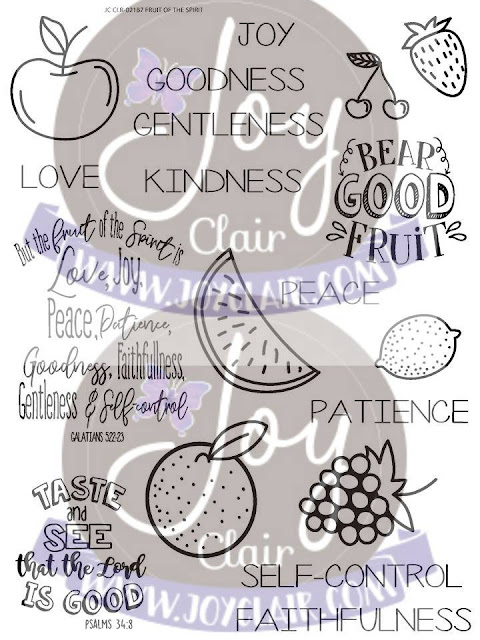 JC CLR-02187 FRUIT OF THE SPIRIT
JOY
GOODNESS
GENTLENESS
LOVE
KINDNESS
BEAR
GOOD
FRUIT
But the fruit of the Spirit is
Love, Joy,
Peace, Patience,
Goodness, Faithfullness,
Gentleness & Self-control
GALATIANS 5:22-23
PEACE
PATIENCE
TASTE
and
SEE
that the Lord
IS GOOD
PSALMS 34:8
SELF-CONTROL
FAITHFULNESS
Joy
Clair
WWW.JOYCLAIR.COM
Joy
Clair
WWW.JOYCLAIR.COM